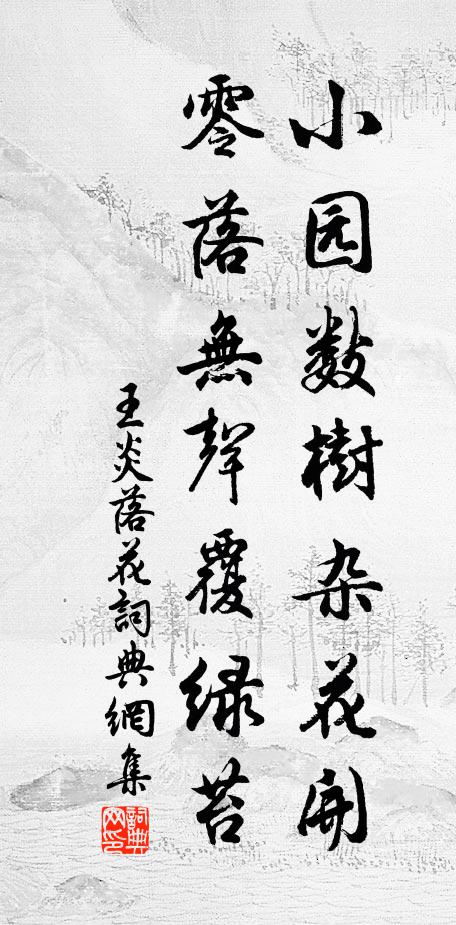 小园数樹杂花開
零落無聲覆绿苔
王炎落花詞典網集
詞典网印